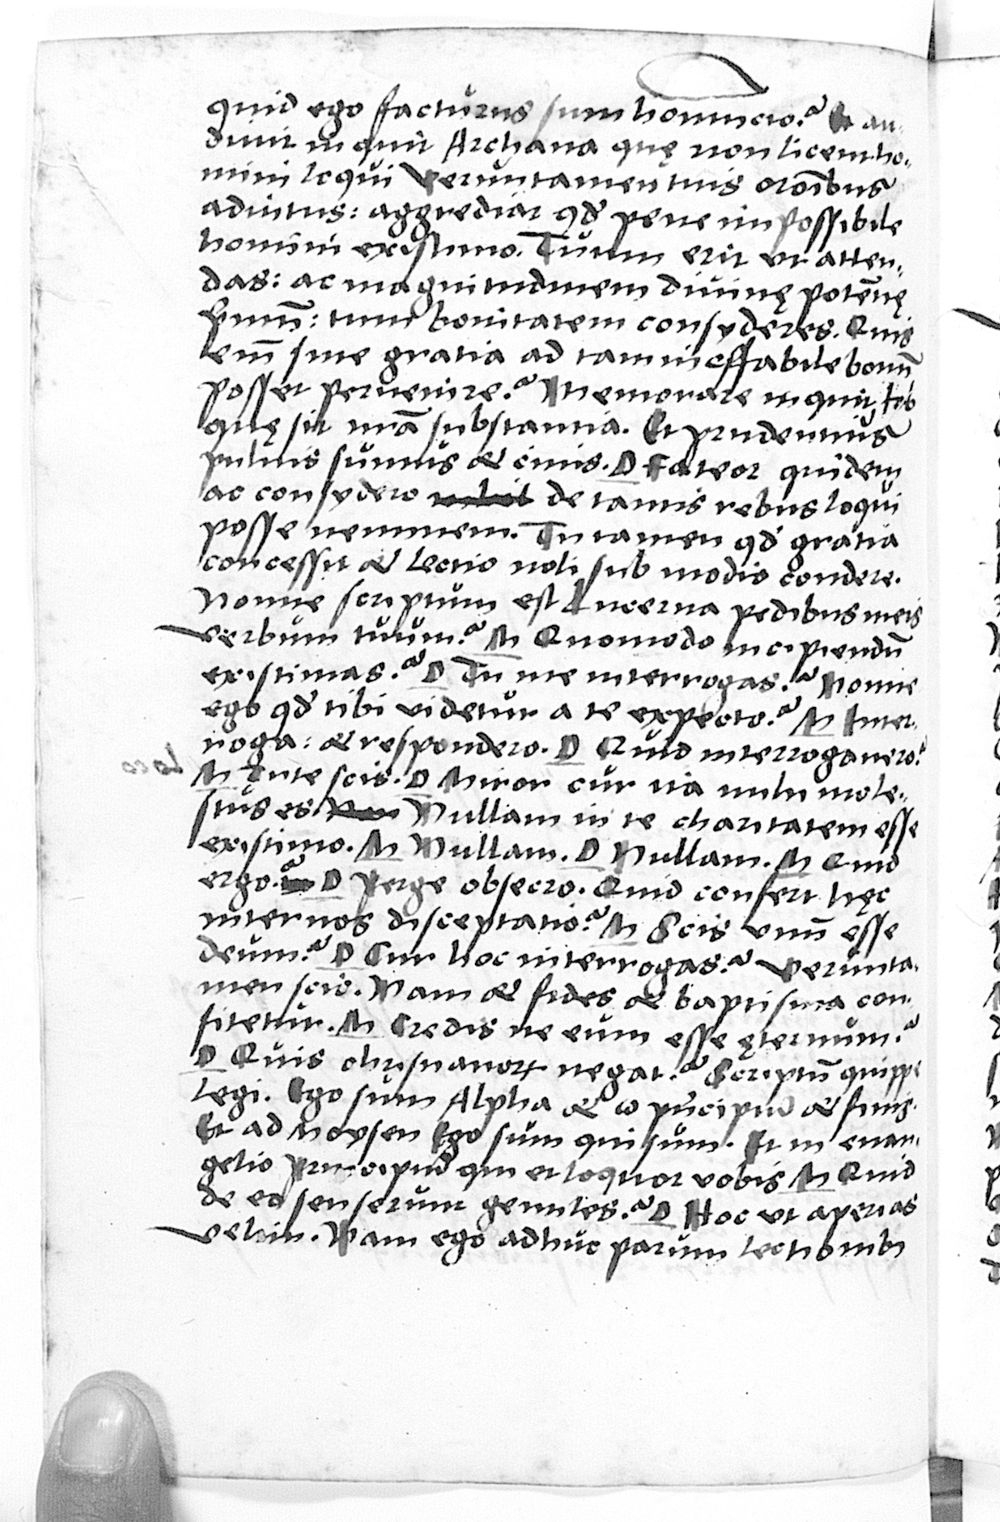 quid ego facturus sum homuncio? Et au-
diuit inquit Archana quę non licent ho-
mini loqui Veruntamen tuis oroībus
adiutus: aggrediar qđ pene impossibile
homini existimo. Tuum erit ut atten-
das: ac magnitudinem diuinę potētię
simū: tum bonitatem consyderes. Quis
em̄ sine gratia ad tam ineffabile bonū
posset peruenire? Memorare inquit Iob
quę sit mea substantia. Et prudentius
puluis sumus & cinis. D Fateor quidem
ac consydero de tantis rebus loqui
posse neminem. Tu tamen qđ gratia
concessit & lectio noli sub modio condere.
Nonne scriptum est Lucerna pedibus meis
verbum tuum? M Quomodo incipiendū
existimas? D Tu me interrogas? Nonne
ego qđ tibi videtur a te expecto? M Inter-
roga: & respondero. D Quid interrogauero?
M Tute scis. D Miror cur ita mihi mole-
stus es. Nullam in te charitatem esse
existimo. M Nullam. D Nullam. M Quid
ergo? D Perge obsecro. Quid confert hęc
inter nos disceptatio? M Scis vnū esse
deum? D Cur hoc interrogas? Verunta-
men scio. Nam & fides & baptisma con-
fitetur. M Credis ne eum esse ęternum?
D Quis christianorꝝ negat? Scriptū quippe
legi. Ego sum Alpha & ω pricipiū & finis.
Et ad Moysen Ego sum qui sum. Et in euan-
gelio Principiū qui et loquor vobis M Quid
de eo senserunt gentiles? D Hoc ut aperias
velim. Nam ego adhuc parum lectionibꝰ